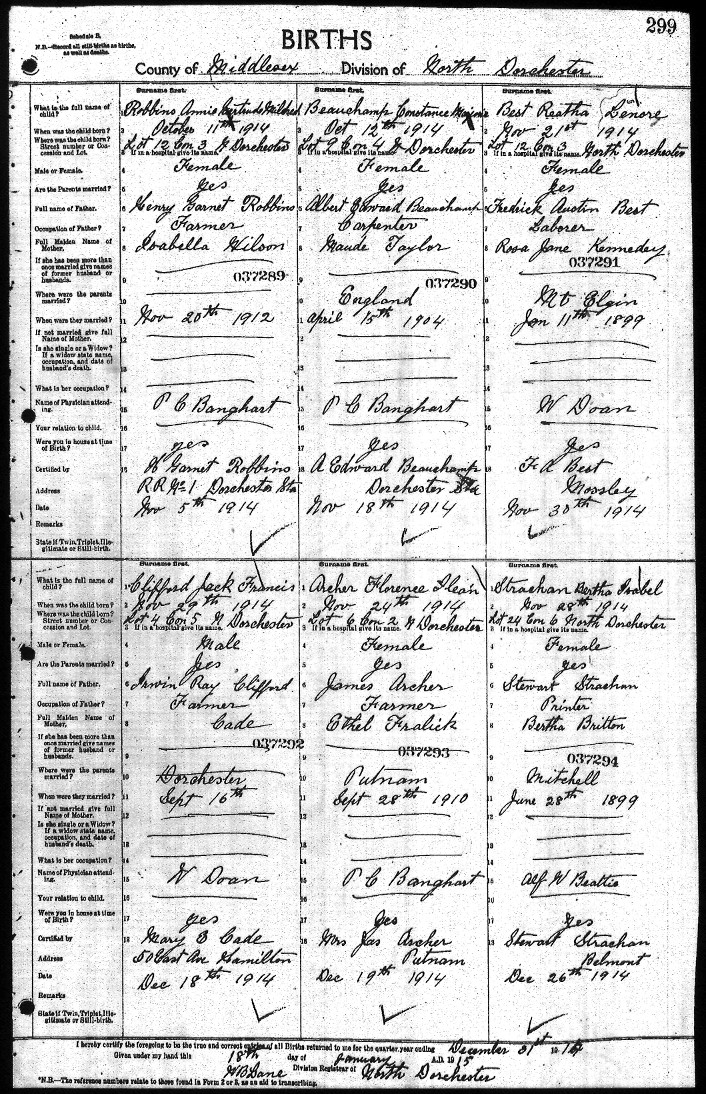 299
Schedule B.
N.B.—Record all still-births as births, as well as deaths.
BIRTHS
County of Middlesex Division of North Dorchester
Surname first. Surname first. Surname first.
What is the full name of child? Robbins Annie Gertrude Mildred Beauchamp Constance Best Reatha Lenore
When was the child born? October 11th 1914 Oct 12th 1914 Nov 21st 1914
Where was the child born? Street number or Concession and Lot. Lot 12 Con 3 N Dorchester Lot 9 Con 4 N Dorchester Lot 12 Con 3 North Dorchester
If in a hospital give its name. If in a hospital give its name. If in a hospital give its name.
Male or Female. Female Female Female
Are the Parents married? yes yes yes
Full name of Father. Henry Garnet Robbins Albert Edward Beauchamp Fredrick Austin Best
Occupation of Father? Farmer Carpenter Laborer
Full Maiden Name of Mother. Isabella Wilson Maude Taylor Rosa Jane Kennedey
If she has been more than once married give names of former husband or husbands.
037289 037290 037291
Where were the parents married? England Mt Elgin
When were they married? Nov 20th 1912 April 15th 1904 Jan 11th 1899
If not married give full Name of Mother.
Is she single or a Widow? If a widow state name, occupation, and date of husband's death.
What is her occupation?
Name of Physician attending. P C Banghart P C Banghart W Doan
Your relation to child.
Were you in house at time of Birth? yes yes yes
Certified by H Garnet Robbins A Edward Beauchamp F A Best
Address R R No 1 Dorchester Sta Dorchester Sta Mossley
Date Nov 5th 1914 Nov 18th 1914 Nov 30th 1914
Remarks
State if Twin, Triplet, Illegitimate or Still-birth.
Surname first. Surname first. Surname first.
What is the full name of child? Clifford Jack Francis Archer Florence Strachan Bertha Isabel
When was the child born? Nov 29th 1914 Nov 24th 1914 Nov 28th 1914
Where was the child born? Street number or Concession and Lot. Lot 4 Con 5 N Dorchester Lot 6 Con 2 N Dorchester Lot 24 Con 6 North Dorchester
If in a hospital give its name. If in a hospital give its name. If in a hospital give its name.
Male or Female. Male Female Female
Are the Parents married? yes yes yes
Full name of Father. Irwin Ray Clifford James Archer Stewart Strachan
Occupation of Father? Farmer Farmer Printer
Full Maiden Name of Mother. Cade Ethel Fralick Bertha Britton
If she has been more than once married give names of former husband or husbands.
037292 037293 037294
Where were the parents married? Dorchester Putnam Mitchell
When were they married? Sept 16th Sept 28th 1910 June 28th 1899
If not married give full Name of Mother.
Is she single or a Widow? If a widow state name, occupation, and date of husband's death.
What is her occupation?
Name of Physician attending. W Doan P C Banghart Alf W Beattie
Your relation to child.
Were you in house at time of Birth? yes yes yes
Certified by Mary E Cade Mrs Jas Archer Stewart Strachan
Address 50 East Ave Hamilton Putnam Belmont
Date Dec 18th 1914 Dec 19th 1914 Dec 26th 1914
Remarks
State if Twin, Triplet, Illegitimate or Still-birth.
I hereby certify the foregoing to be the true and correct entries of all Births returned to me for the quarter, year ending December 31st 1914
Given under my hand this 18th day of January A.D. 1915
W B Lane Division Registrar of North Dorchester
*N.B.—The reference numbers relate to those found in Form 2 or 3, as an aid to transcribing.